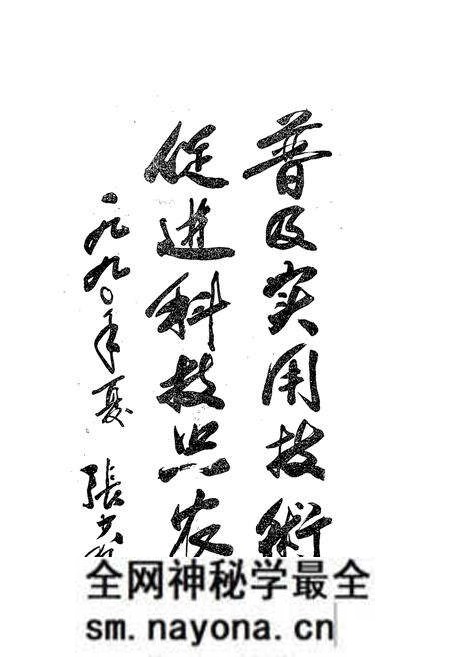 普及实用技術
促进科技兴农
一九九〇年夏 張
全网神秘学最全
sm.nayona.cn